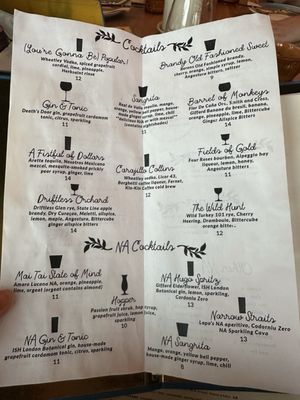 Cocktails
(You're Gonna Be) Popular!
Wheatley Vodka, spiced grapefruit
cordial, lime, pineapple,
Herbsaint rinse
12
Brandy Old Fashioned Sweet
Korbel Old Fashioned brandy,
cherry, orange, simple syrup, lemon,
Angostura bitters, seltzer
Gin & Tonic
Death's Door gin, grapefruit cardamom
tonic, citrus, sparkling
11
Sangrita
mango,
pepper, house-
made ginger syrup, lime, chili
11
Barrel of Monkeys
Flor De Caña Orc, Smith and Cross,
Giffard Banane du Bresil, banana,
orange, pineapple, lime, nutmeg,
Angostura bitters
14
A Fistful of Dollars
Arette tequila, Nuestra Soledad
mezcal, prickly
pear syrup, ginger, lime
14
Carajillo Collins
Wheatley vodka, Licor 43,
Borghetti coffee liqueur, Fernet,
Kin-Kin Coffee cold brew
12
Fields of Gold
Four Roses bourbon, Alpeggio bay
liqueur, lemon, honey,
Angostura bitters
11
Driftless Orchard
Driftless Glen rye, State Line apple
brandy, Dry Curaçao, Meletti, allspice,
lemon, maple, Angostura, Bittercube
ginger allspice bitters
14
The Wild Hunt
Wild Turkey 101 rye, Cherry
Heering, Drambuie, Bittercube
orange bitters
12
NA Cocktails
Mai Tai State of Mind
Amaro Lucano NA, orange, pineapple,
lime, orgeat (orgeat contains almond)
11
Hopper
Passion fruit shrub, hop syrup,
grapefruit juice, lemon juice,
sparkling
10
NA Hugo Spritz
Giffard Elderflower, ISH London
Botanical gin, lemon, sparkling,
Codorníu Zero
13
NA Gin & Tonic
ISH London Botanical gin, house-made
grapefruit cardamom tonic, citrus, sparkling
12
NA Sangrita
Mango, orange, yellow bell pepper,
house-made ginger syrup, lime, chili
8
Narrow Straits
Lapo's NA aperitivo, Codorníu Zero
NA Sparkling Cava
13